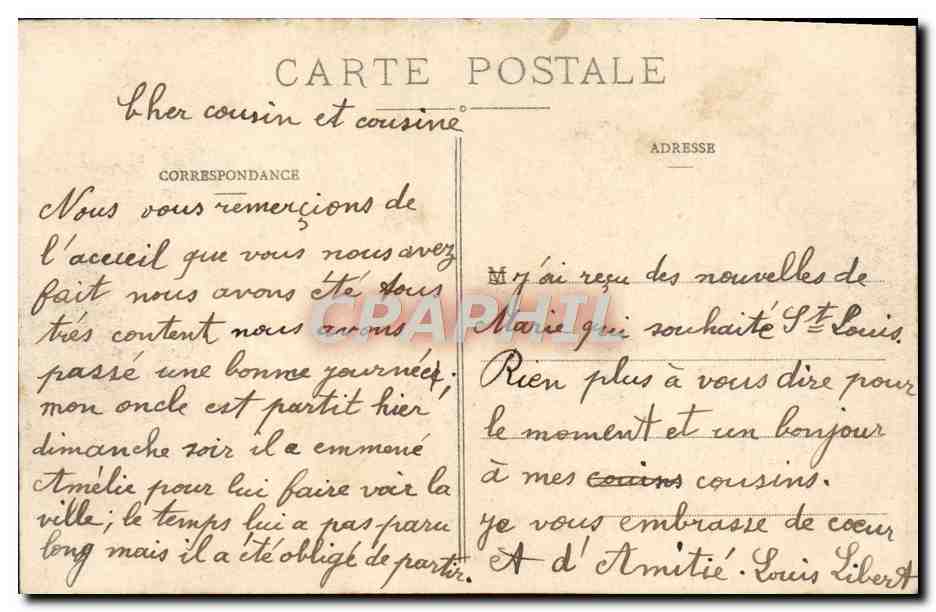 CARTE POSTALE
Cher cousin et cousine
CORRESPONDANCE
Nous vous remerçions de
l'accueil que vous nous avez
fait nous avons été tous
trés content nous avons
passé une bonne journée;
mon oncle est partit hier
dimanche soir il a emmené
Amélie pour lui faire voir la
ville; le temps lui a pas paru
long mais il a été obligé de partir.
ADRESSE
M j'ai reçu des nouvelles de
Marie qui souhaité St Louis.
Rien plus à vous dire pour
le moment et un bonjour
à mes couins cousins.
je vous embrasse de cœur
et d'Amitié. Louis Libert
CPAPHIL